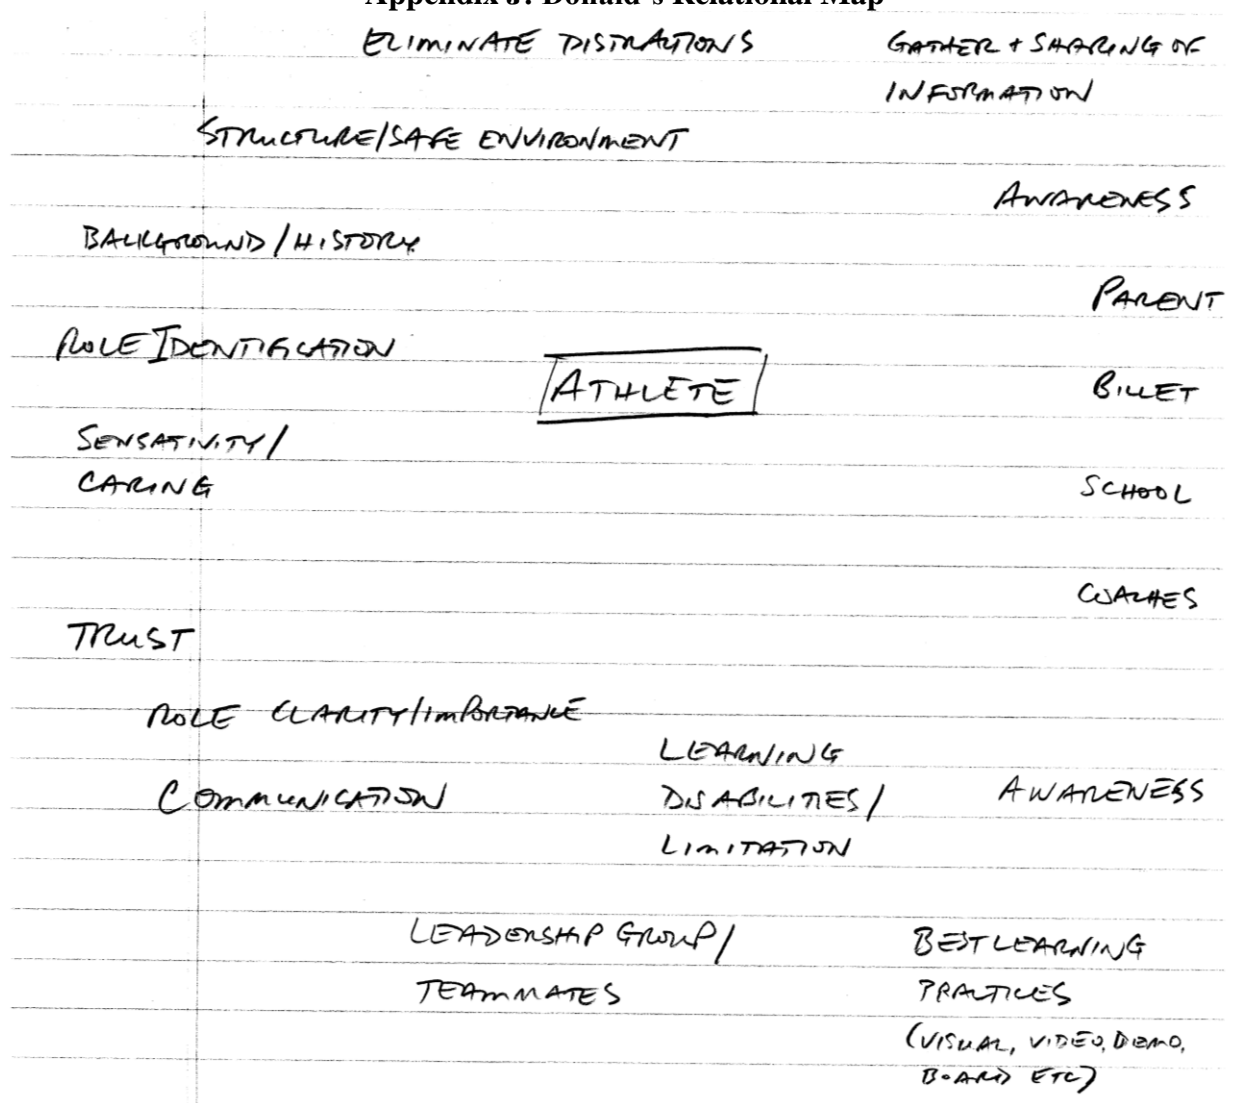 Appendix J: Donald's Relational Map
ELIMINATE DISTRACTIONS
GATHER + SHARING OF
INFORMATION
STRUCTURE/SAFE ENVIRONMENT
AWARENESS
BACKGROUND/HISTORY
PARENT
ROLE IDENTIFICATION
ATHLETE
BILLET
SENSATIVITY/
CARING
SCHOOL
COACHES
TRUST
ROLE CLARITY/IMPORTANCE
LEARNING
DISABILITIES/
LIMITATION
COMMUNICATION
AWARENESS
LEADERSHIP GROUP/
TEAMMATES
BEST LEARNING
PRACTICES
(VISUAL, VIDEO, DEMO,
BOARD ETC)